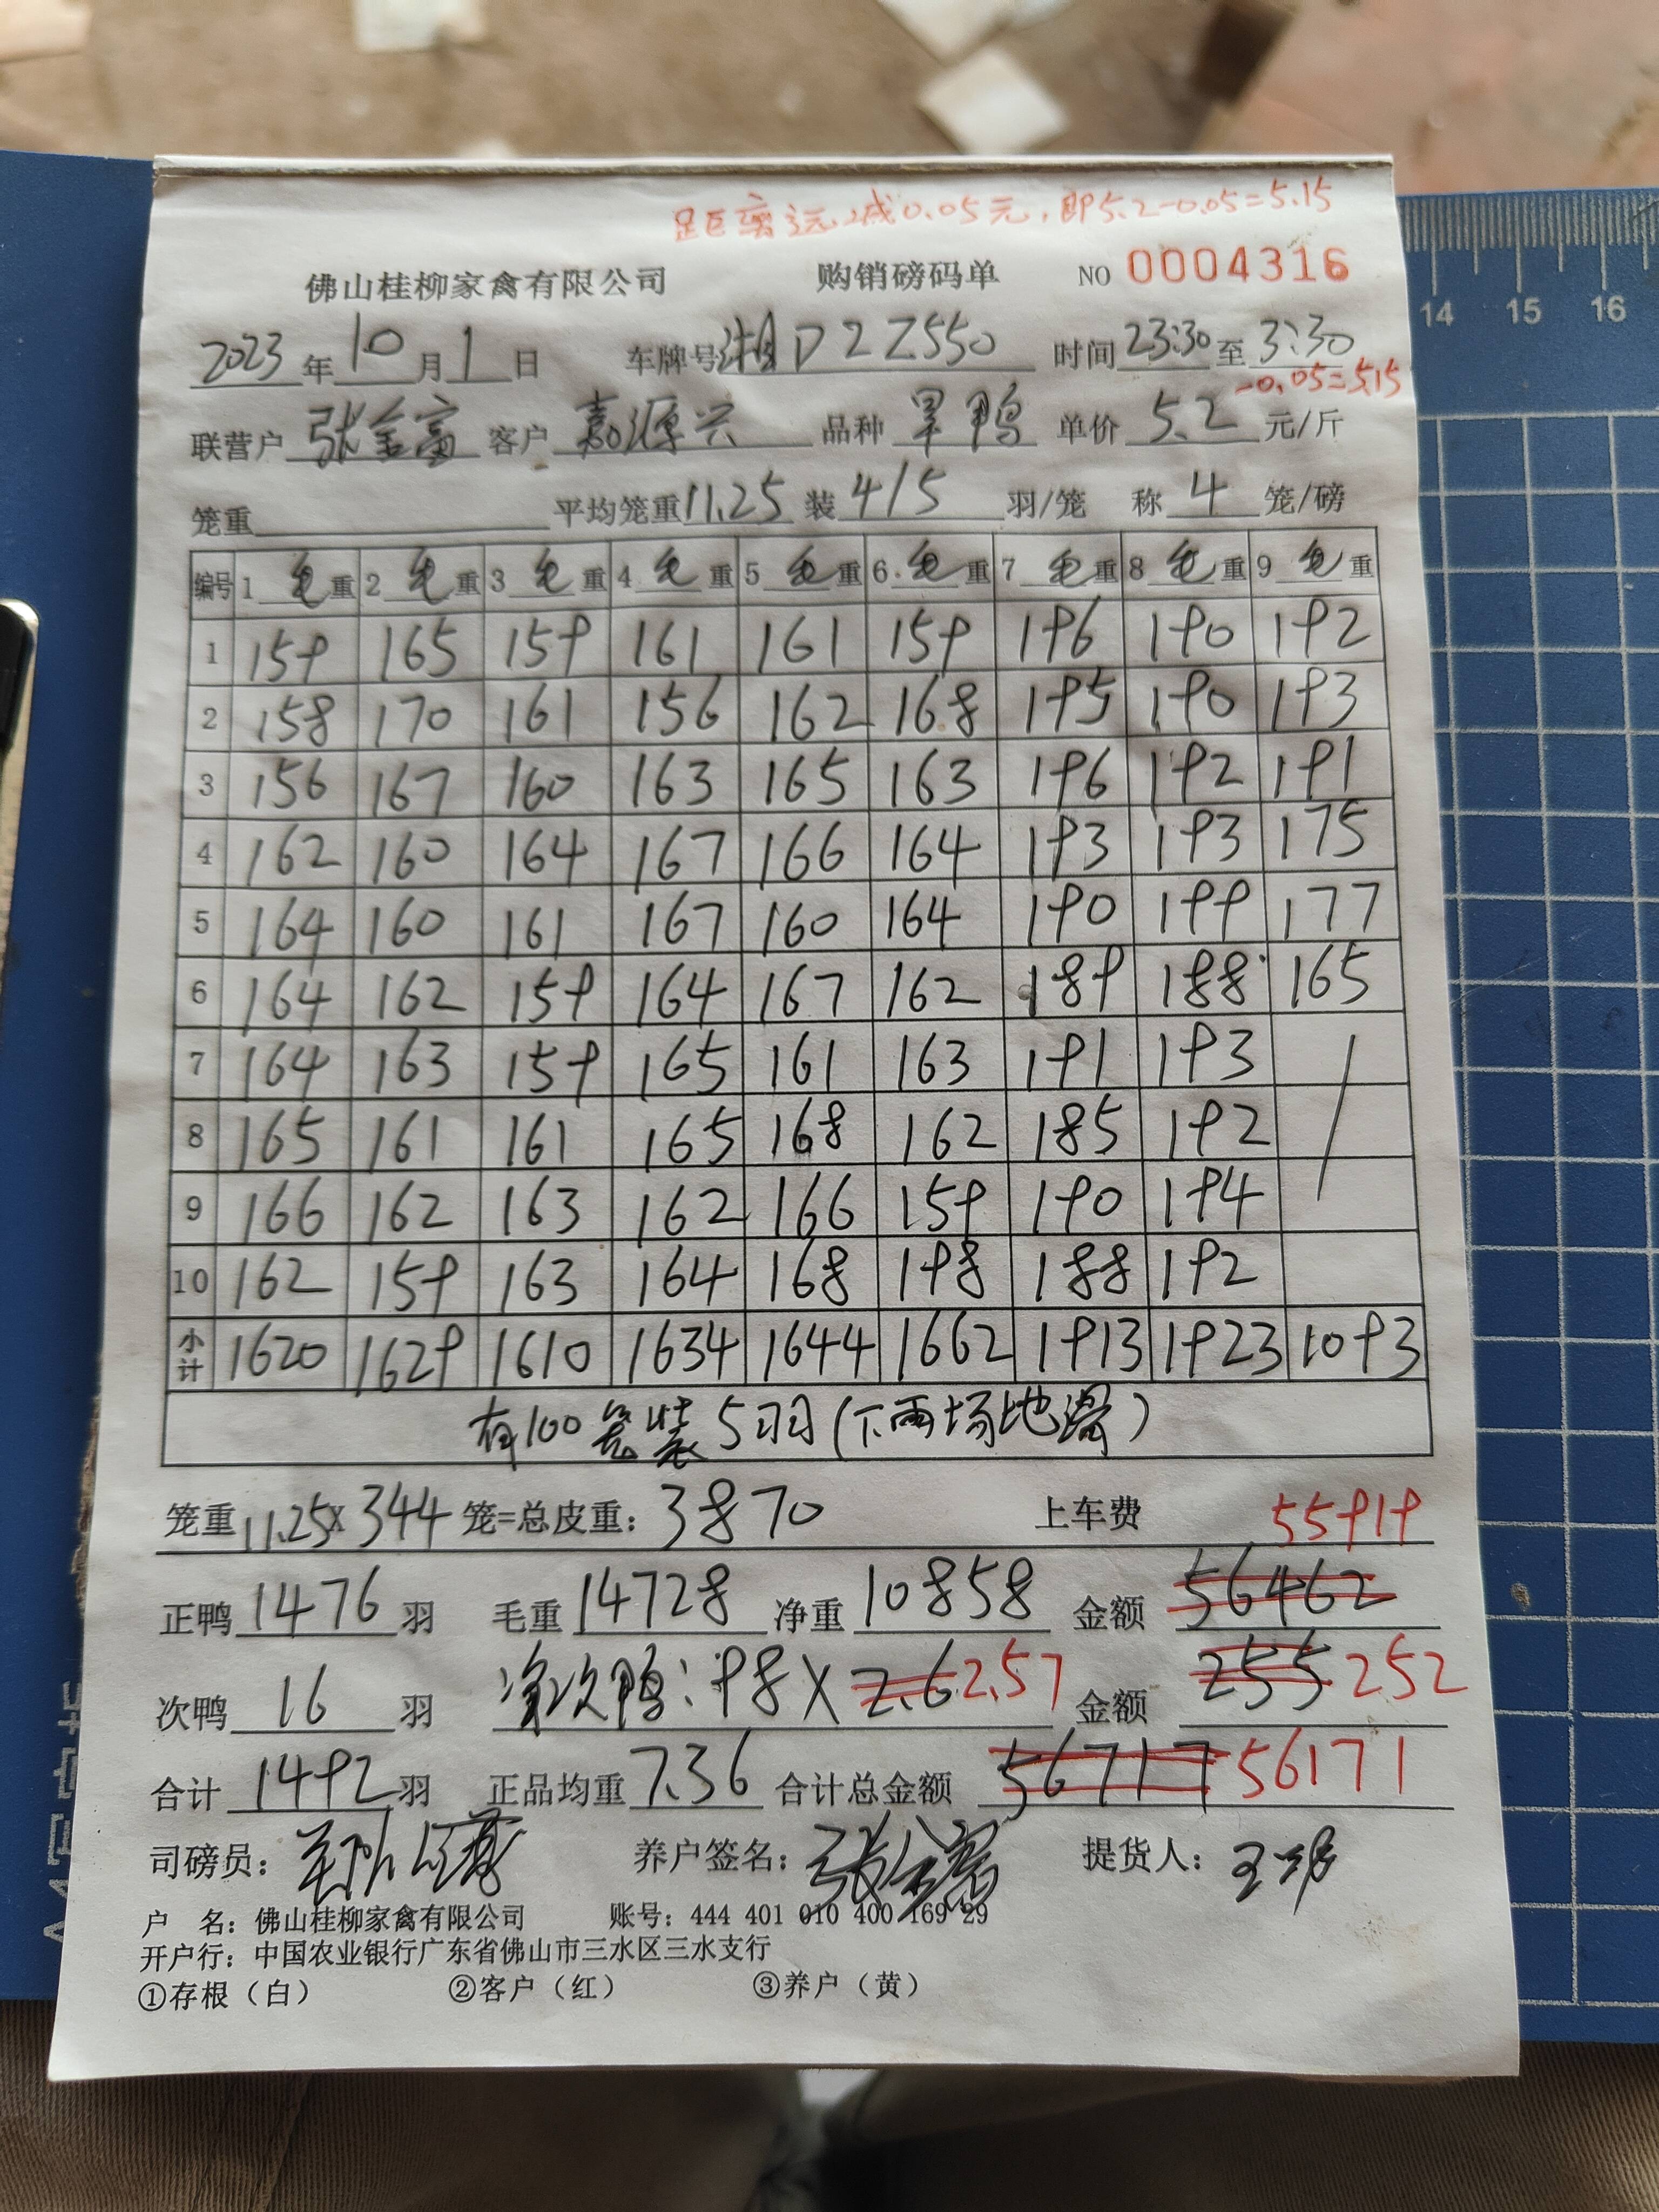 距离远减0.05元,即5.2-0.05=5.15
佛山桂柳家禽有限公司 购销磅码单 NO 0004316
2023年10月1日 车牌号湘D2Z550 时间23:30至3:30
-0.05=5.15
联营户 张金富 客户 嘉源兴 品种 旱鸭 单价 5.2 元/斤
笼重 平均笼重11.25 装4/5 羽/笼 称 4 笼/磅
编号 1 毛重 2 毛重 3 毛重 4 毛重 5 毛重 6 毛重 7 毛重 8 毛重 9 毛重
1 159 165 159 161 161 159 196 190 192
2 158 170 161 156 162 168 195 190 193
3 156 167 160 163 165 163 196 192 191
4 162 160 164 167 166 164 193 193 175
5 164 160 161 167 160 164 190 199 177
6 164 162 159 164 167 162 189 188 165
7 164 163 159 165 161 163 191 193
8 165 161 161 165 168 162 185 192
9 166 162 163 162 166 159 190 194
10 162 159 163 164 168 198 188 192
小计 1620 1629 1610 1634 1644 1662 1913 1923 1093
有100笼装5羽(下雨场地滑)
笼重11.25X344笼=总皮重: 3870 上车费 55919
正鸭 1476 羽 毛重 14728 净重 10858 金额 56462
次鸭 16 羽 次鸭: 98X2.6 2.57 金额 255 252
合计 1492 羽 正品均重 7.36 合计总金额 56717 56171
司磅员: 养户签名: 张金富 提货人:
户 名: 佛山桂柳家禽有限公司 账号: 444 401 010 400 169 29
开户行: 中国农业银行广东省佛山市三水区三水支行
①存根(白) ②客户(红) ③养户(黄)
14 15 16